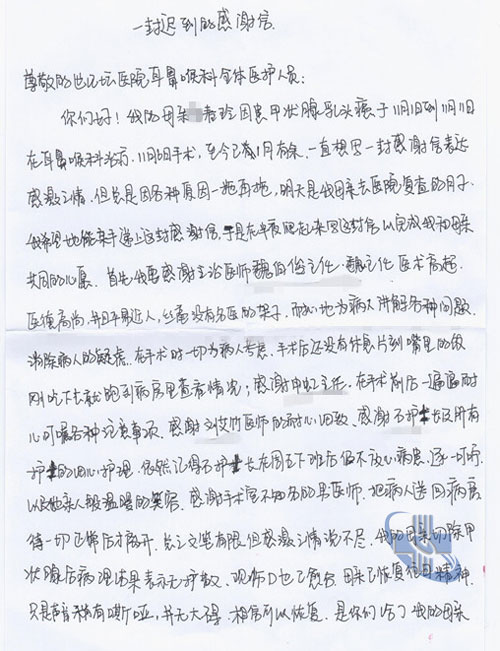 一封迟到的感谢信
尊敬的世纪坛医院耳鼻喉科全体医护人员:
你们好!我的母亲春玲因患甲状腺乳头癌于11月1日到11月11日
在耳鼻喉科治病,11月6日手术,至今已有1月有余,一直想写一封感谢信表达
感激之情,但总是因各种原因一拖再拖,明天是我母亲去医院复查的日子,
我希望她能亲手递上这封感谢信,于是在半夜爬起来写这封信以完成我和母亲
共同的心愿。首先我要感谢主治医师魏伯俊主任,魏主任医术高超,
医德高尚,并且平易近人,丝毫没有名医的架子,耐心地为病人讲解各种问题,
消除病人的疑虑,在手术时一切为病人考虑,手术后还没有休息片刻嘴里的饭
刚吃下去就跑到病房里查看情况;感谢申虹主任,在手术前后一遍遍耐
心叮嘱各种注意事项,感谢刘艾竹医师的耐心回致,感谢石护士长及所有
护士的细心护理,依然记得石护士长在周五下班后仍不放心病患,逐一叮咛,
以及她亲人般温暖的笑容,感谢手术室不知名的男医师,把病人送回病房
待一切正常后才离开,长江文笔有限但感激之情说不尽,我的母亲切除甲
状腺后病理结果表示无扩散,现伤口也已愈合,母亲已恢复往日精神,
只是声音稍有嘶哑,并无大碍,相信可以恢复,是你们给了我的母亲